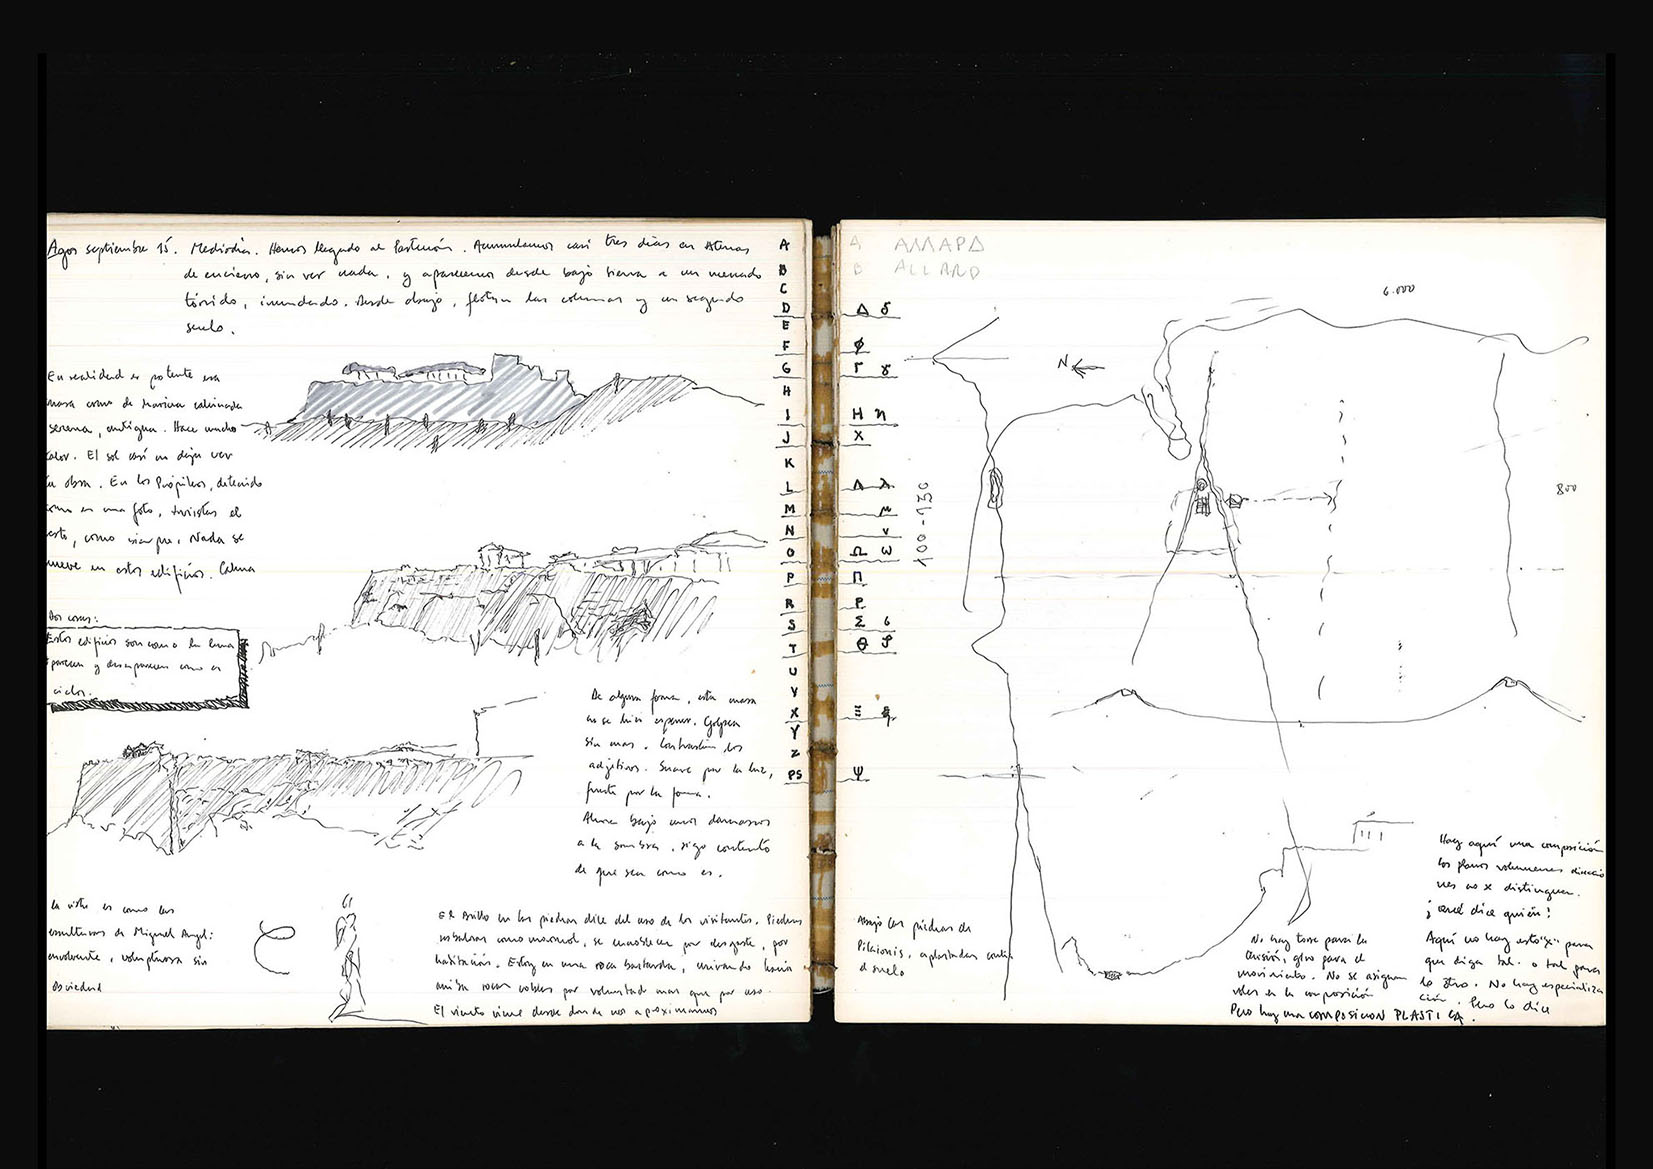 Agos septiembre 15. Mediodía. Hemos llegado al Partenón. Acumulamos casi tres días en Atenas
de encierro, sin ver nada, y aparecemos desde bajo tierra a un
tórrido, inundado. Desde abajo, flotan las columnas y un segundo
suelo.
En realidad es potente esa
masa como de harina calcinada
serena, antigua. Hace mucho
calor. El sol casi no deja ver
la obra. En los Propíleos, detenido
como en una foto, el
como siempre. Nada se
mueve en estos edificios. Calma
Dos cosas:
Estos edificios son como la luna
aparecen y desaparecen como en
ciclos.
De alguna forma, esta masa
no se hizo esperar. Golpea
sin mas. Contrastan los
adjetivos. Suave por la luz,
fuerte por la forma.
Ahora bajo unos damascos
a la sombra, sigo contento
de que sea como es.
la vista es como las
esculturas de Miguel Angel:
envolvente, voluptuosa sin
El brillo en las piedras dice del uso de los visitantes. Piedras
como marmol, se ennoblecen por desgaste, por
habitación. Estoy en una roca bastarda, mirando hacia
arriba rocas nobles por voluntad mas que por uso.
El viento viene desde donde nos aproximamos
A
B
C
D
E
F
G
H
I
J
K
L
M
N
O
P
R
S
T
U
V
X
Y
Z
PS
A ΑΛΛΑΡΔ
B ALLARD
Δ δ
φ
Γ γ
Η η
Χ
Λ λ
μ
ν
Ω ω
Π
Ρ
Σ
Θ
Ξ ξ
Ψ
6.000
N
100-130
800
Abajo las piedras de
aplastadas contra
el suelo
No hay torre para la
visión, giro para el
movimiento. No se asignan
roles en la composición
Pero hay una COMPOSICION PLASTICA.
Hay aquí una composición
los planos volumenes direccio
nes no se distinguen.
¿qué dice quién?
Aquí no hay esto "x" para
que diga tal. o tal para
lo otro. No hay especializa
ción. Pero lo dice